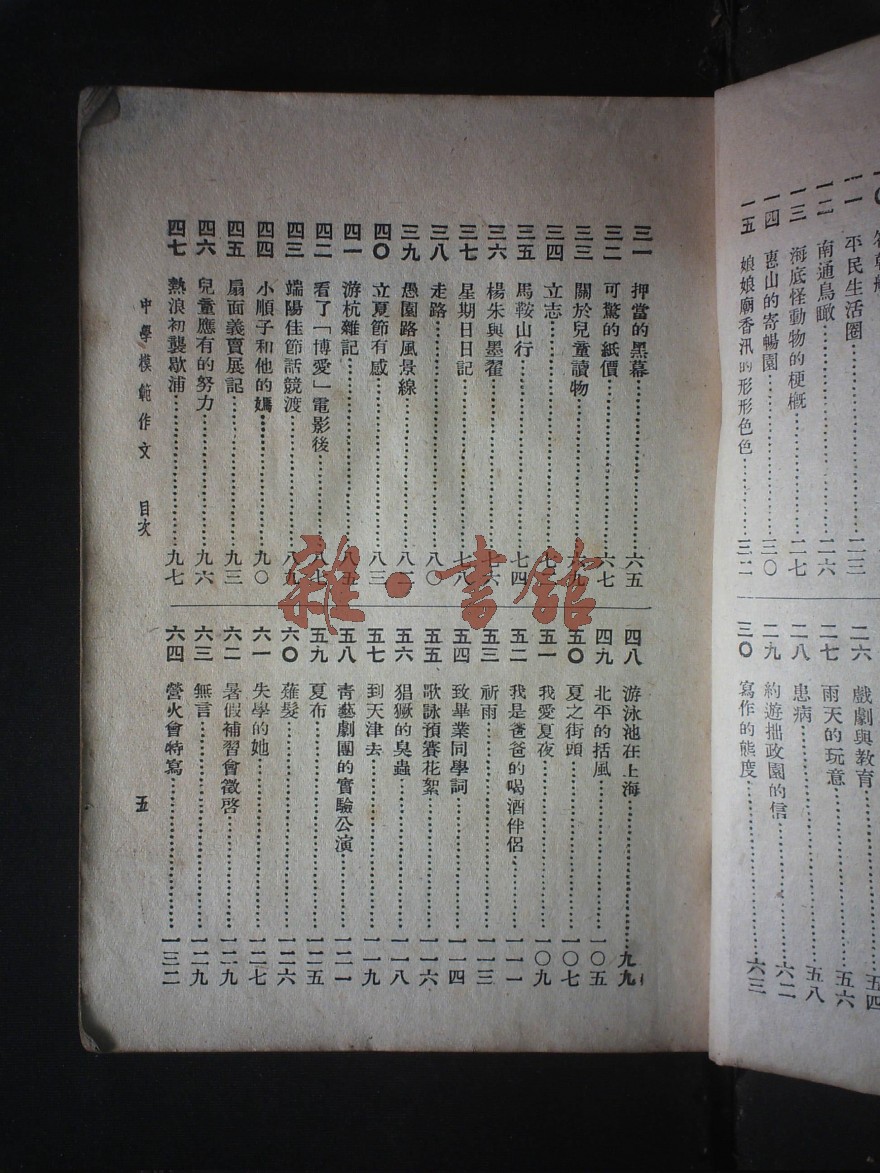 一一 平民生活圈……………二三
一二 南通鳥瞰……………二六
一三 海底怪動物的梗概……………二七
一四 惠山的寄暢園……………三〇
一五 娘娘廟香汛的形形色色……………三二
二六 戲劇與教育……………五四
二七 雨天的玩意……………五六
二八 患病……………五八
二九 約遊拙政園的信……………六二
三〇 寫作的態度……………六三
三一 押當的黑幕……………六五
三二 可驚的紙價……………六七
三三 關於兒童讀物……………六九
三四 立志……………
三五 馬鞍山行……………七四
三六 楊朱與墨翟……………七六
三七 星期日日記……………七八
三八 走路……………八〇
三九 愚園路風景線……………
四〇 立夏節有感……………八三
四一 游杭雜記……………八五
四二 看了「博愛」電影後……………八七
四三 端陽佳節話競渡……………八九
四四 小順子和他的媽……………九〇
四五 扇面義賣展記……………九三
四六 兒童應有的努力……………九六
四七 熱浪初襲歇浦……………九七
四八 游泳池在上海……………九九
四九 北平的括風……………一〇五
五〇 夏之街頭……………一〇七
五一 我愛夏夜……………一〇九
五二 我是爸爸的喝酒伴侶……………一一一
五三 祈雨……………一一三
五四 致畢業同學詞……………一一四
五五 歌詠預賽花絮……………一一六
五六 猖獗的臭蟲……………一一八
五七 到天津去……………一一九
五八 青藝劇團的實驗公演……………一二一
五九 夏布……………一二五
六〇 薙髮……………一二六
六一 失學的她……………一二七
六二 暑假補習會徵啓……………一二九
六三 無言……………一二九
六四 營火會特寫……………一三二
中學模範作文 目次 五
雜·書館